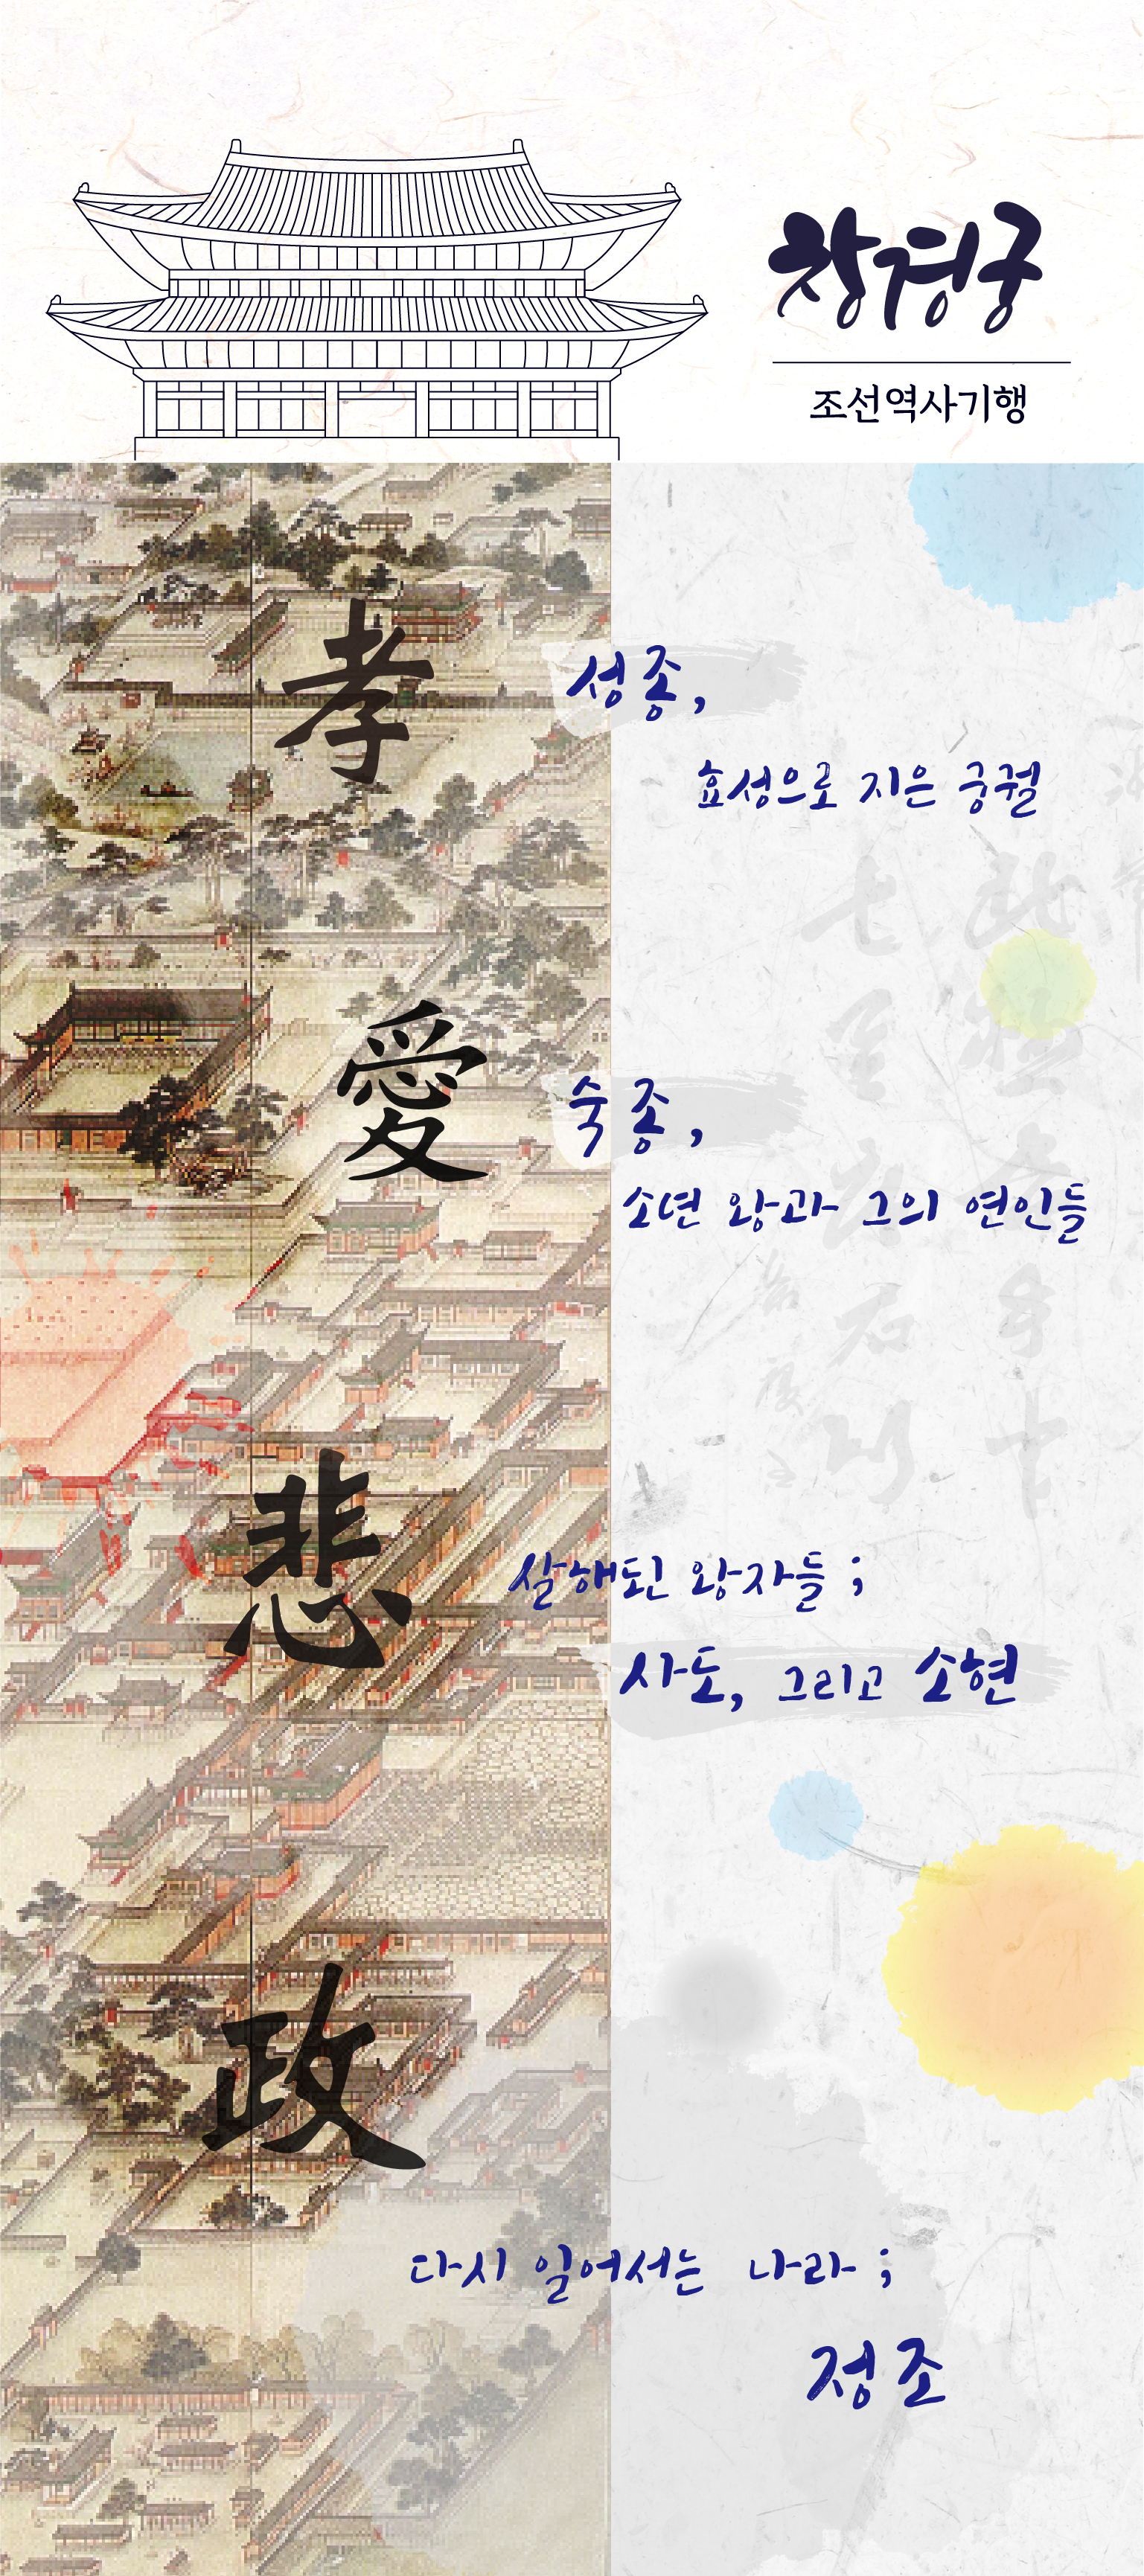 창경궁
조선역사기행
孝
성종,
효성으로 지은 궁궐
愛
숙종,
소년 왕과 그의 연인들
悲
살해된 왕자들 ;
사도, 그리고 소현
政
다시 일어서는 나라 ;
정조